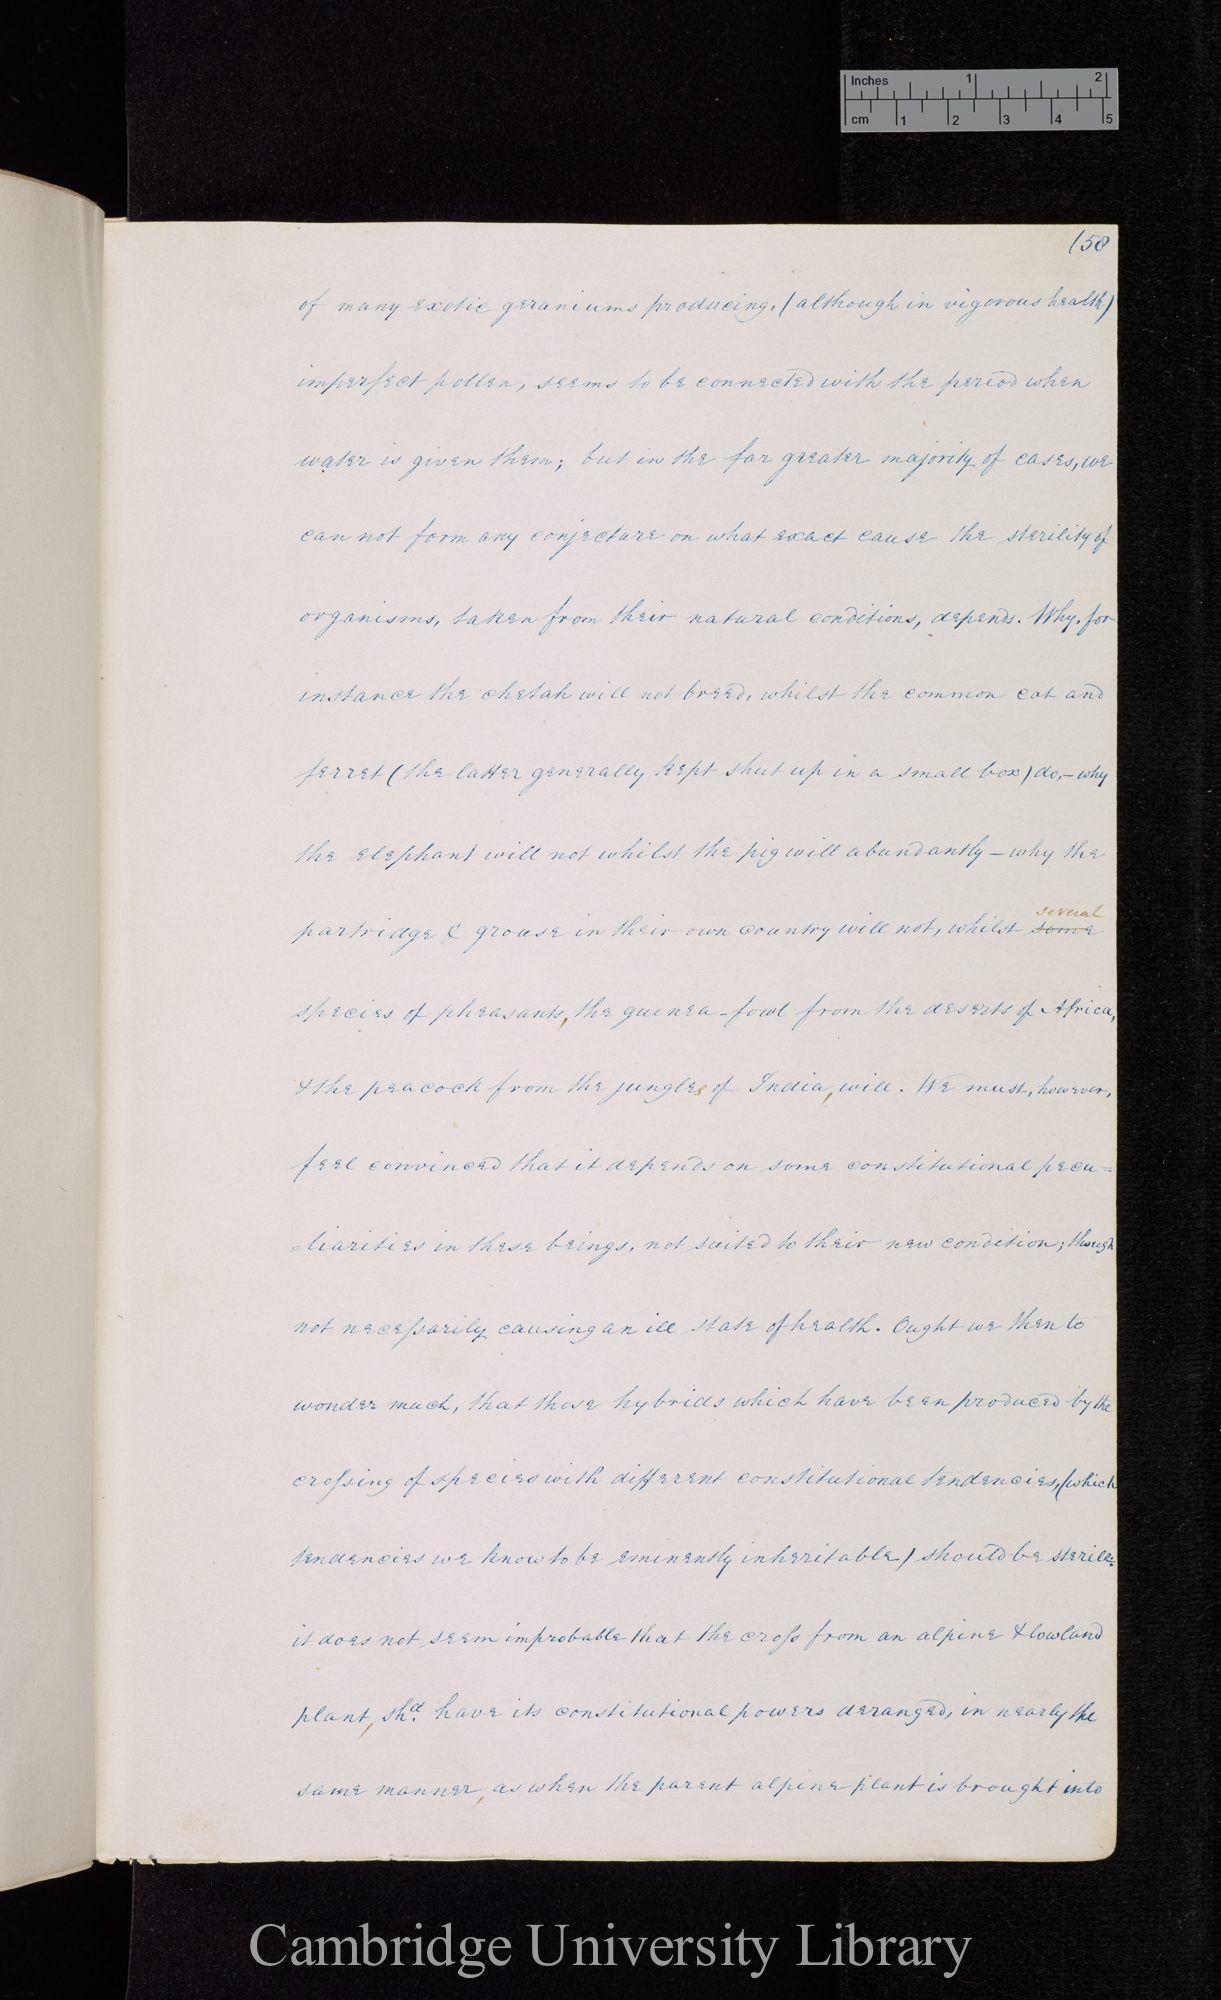 Inches 1 2
cm 1 2 3 4 5
158
of many exotic geraniums producing, (although in vigorous health)
imperfect pollen, seems to be connected with the period when
water is given them; but in the far greater majority of cases, we
can not form any conjecture on what exact cause the sterility of
organisms, taken from their natural conditions, depends. Why, for
instance the chetah will not breed, whilst the common cat and
ferret (the latter generally kept shut up in a small box) do,— why
the elephant will not whilst the pig will abundantly — why the
several
partridge & grouse in their own country will not, whilst some
species of pheasants, the guinea-fowl from the deserts of Africa,
& the peacock from the jungles of India, will. We must, however,
feel convinced that it depends on some constitutional pecu=
=liarities in these beings, not suited to their new condition; though
not necessarily causing an ill state of health. Ought we then to
wonder much, that those hybrids which have been produced by the
crossing of species with different constitutional tendencies, (which
tendencies we know to be eminently inheritable) should be sterile:
it does not seem improbable that the cross from an alpine & lowland
plant, shd. have its constitutional powers deranged, in nearly the
same manner, as when the parent alpine plant is brought into
Cambridge University Library